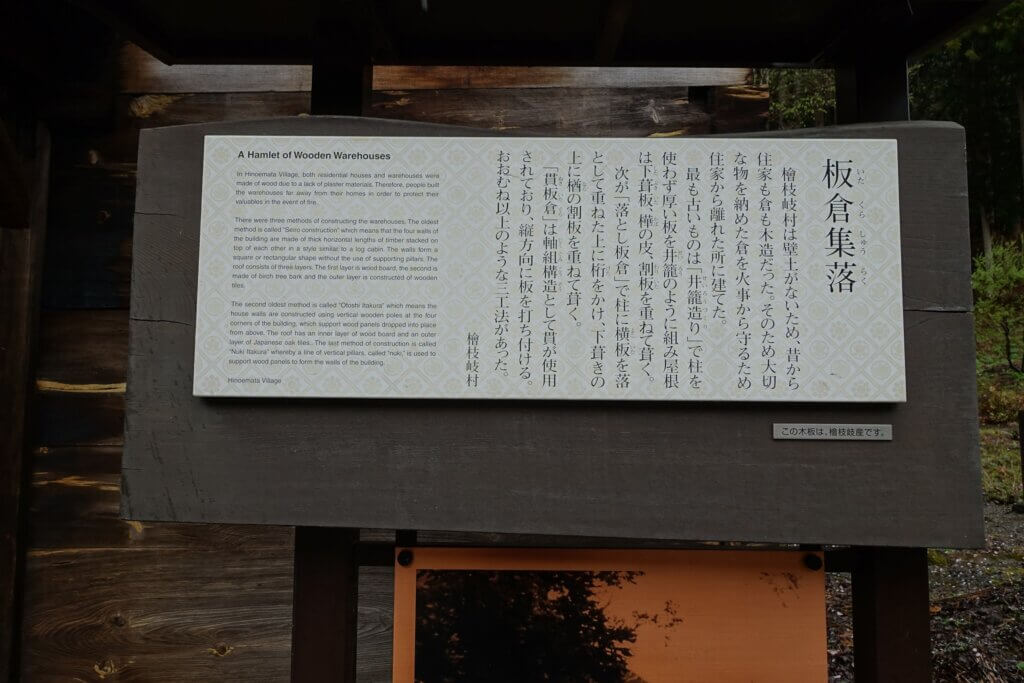 A Hamlet of Wooden Warehouses
In Hinoemata Village, both residential houses and warehouses were
made of wood due to a lack of plaster materials. Therefore, people built
the warehouses far away from their homes in order to protect their
valuables in the event of fire.
There were three methods of constructing the warehouses. The oldest
method is called "Seiro construction" which means that the four walls of
the building are made of thick horizontal lengths of timber stacked on
top of each other in a style similar to a log cabin. The walls form a
square or rectangular shape without the use of supporting pillars. The
roof consists of three layers. The first layer is wood board, the second is
made of birch tree bark and the outer layer is constructed of wooden
tiles.
The second oldest method is called "Otoshi Itakura" which means the
house walls are constructed using vertical wooden poles at the four
corners of the building, which support wood panels dropped into place
from above. The roof has an inner layer of wood board and an outer
layer of Japanese oak tiles. The last method of construction is called
"Nuki Itakura" whereby a line of vertical pillars, called "nuki," is used to
support wood panels to form the walls of the building.
Hinoemata Village
板倉集落
いた くら しゅう らく
檜枝岐村は壁土がないため、昔から
住家も倉も木造だった。そのため大切
な物を納めた倉を火事から守るため
住家から離れた所に建てた。
最も古いものは「井籠造り」で柱を
使わず厚い板を井籠のように組み屋根
は下葺板、樺の皮、割板を重ねて葺く。
次が「落とし板倉」で柱に横板を落
として重ねた上に桁をかけ、下葺きの
上に楢の割板を重ねて葺く。
「貫板倉」は軸組構造として貫が使用
されており、縦方向に板を打ち付ける。
おおむね以上のような三工法があった。
檜枝岐村
この木板は、檜枝岐産です。